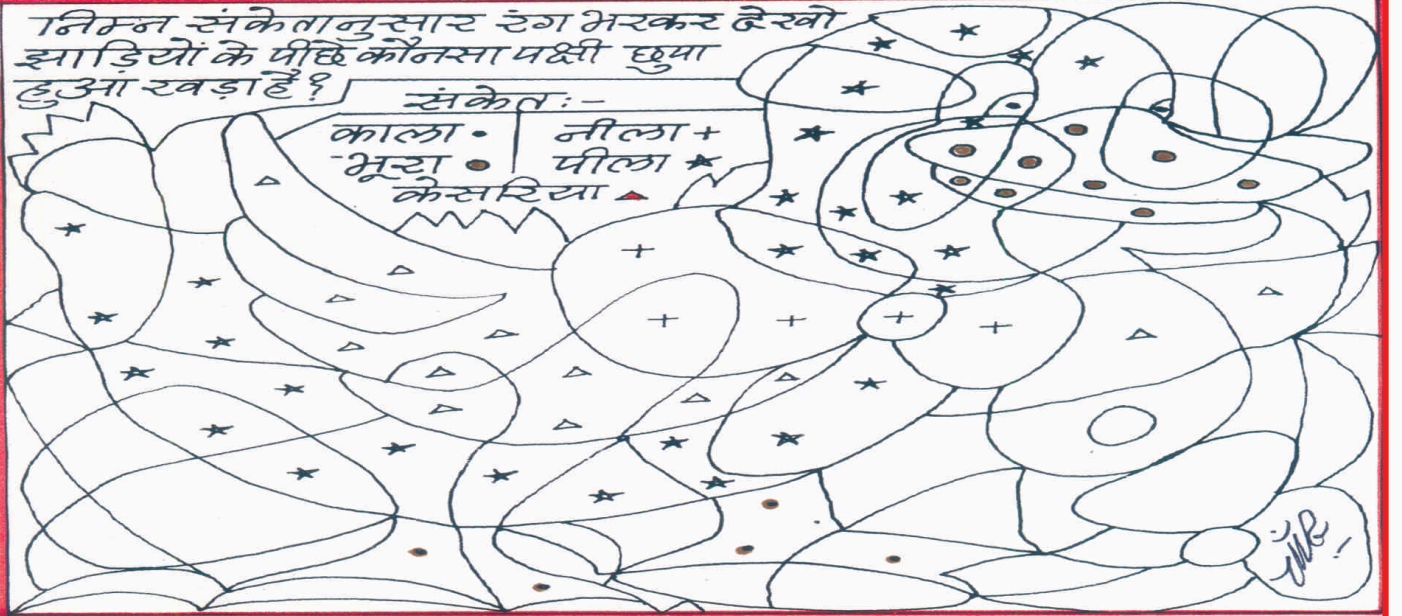 निम्न संकेतानुसार रंग भरकर देखो
झाड़ियों के पीछे कौनसा पक्षी छुपा
हुआ खड़ा है?
संकेत:-
काला • नीला +
भूरा ● पीला ★
केसरिया ▲